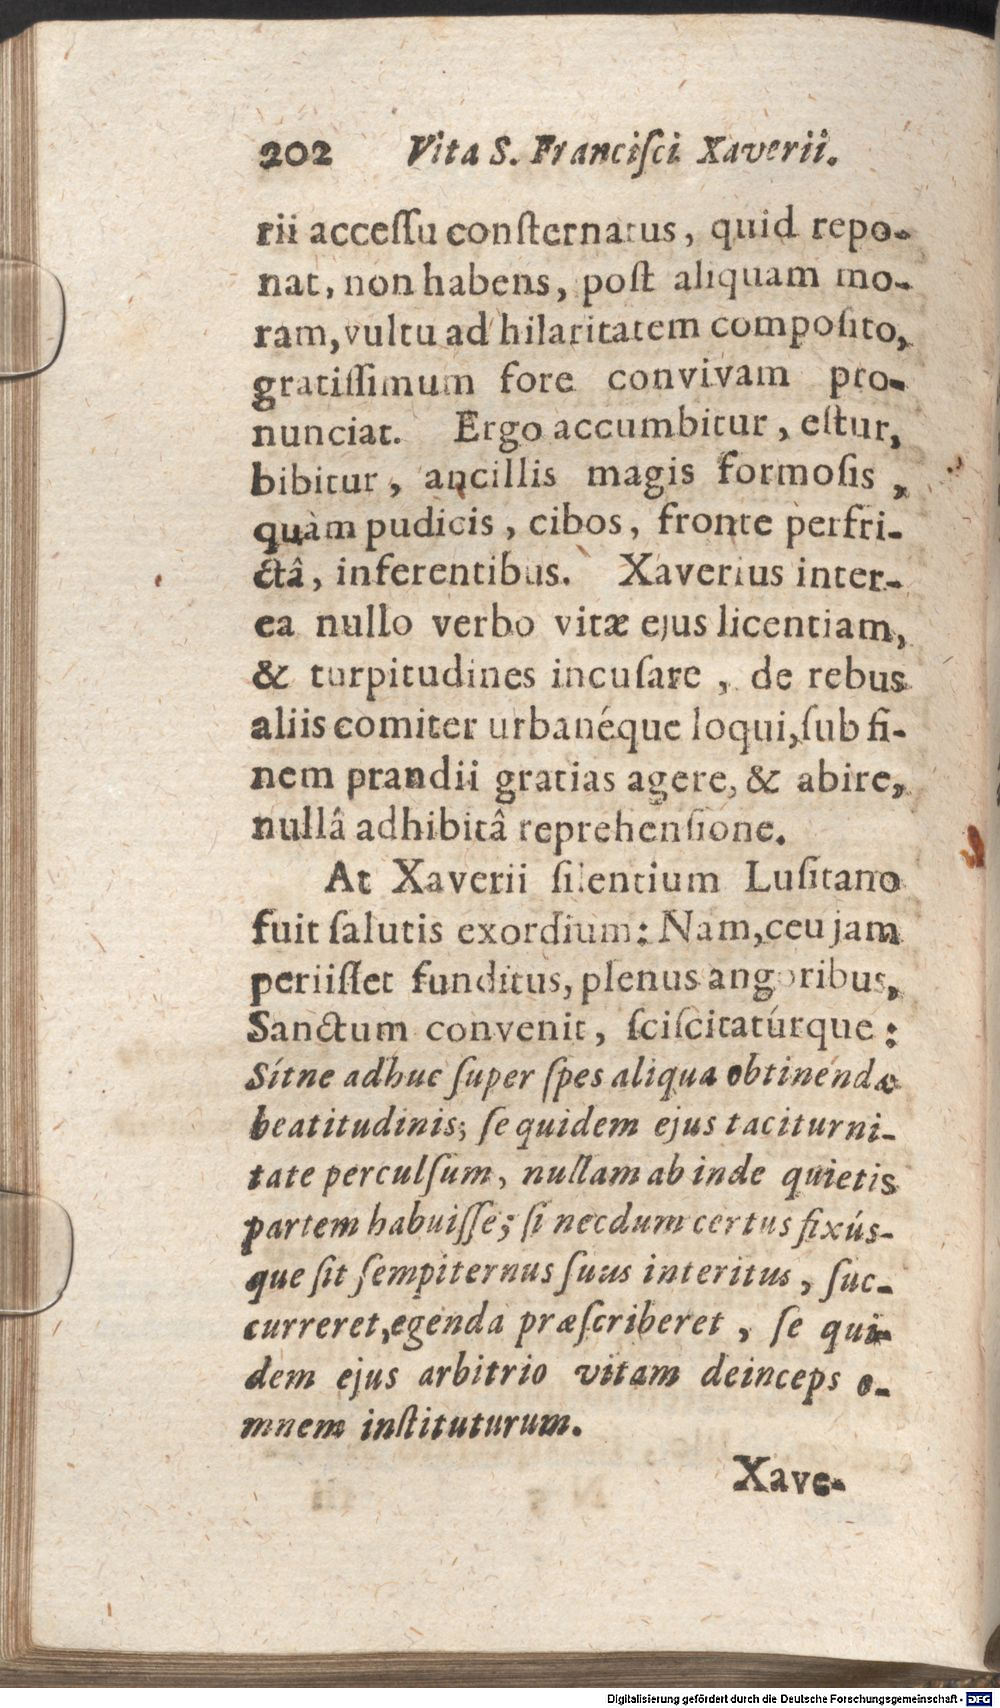 202 Vita S. Franciſci Xaverii.
rii acceſſu conſternatus, quid repo-
nat, non habens, poſt aliquam mo-
ram, vultu ad hilaritatem compoſito,
gratiſſimum fore convivam pro-
nunciat. Ergo accumbitur, eſtur,
bibitur, ancillis magis formoſis,
quàm pudicis, cibos, fronte perfri-
ctâ, inferentibus. Xaverius inter-
ea nullo verbo vitæ ejus licentiam,
& turpitudines incuſare, de rebus
aliis comiter urbanéque loqui, ſub fi-
nem prandii gratias agere, & abire,
nullâ adhibitâ reprehenſione.
At Xaverii ſilentium Luſitano
fuit ſalutis exordium: Nam, ceu jam
periiſſet funditus, plenus angoribus,
Sanctum convenit, ſciſcitatúrque:
Sítne adhuc ſuper ſpes aliqua obtinendæ
beatitudinis; ſe quidem ejus taciturni-
tate perculſum, nullam ab inde quietis
partem habuiſſe; ſi necdum certus fixús-
que ſit ſempiternus ſuus interitus, ſuc-
curreret, egenda præſcriberet, ſe qui-
dem ejus arbitrio vitam deinceps o-
mnem inſtituturum.
Xave-
Digitalisierung gefördert durch die Deutsche Forschungsgemeinschaft - DFG